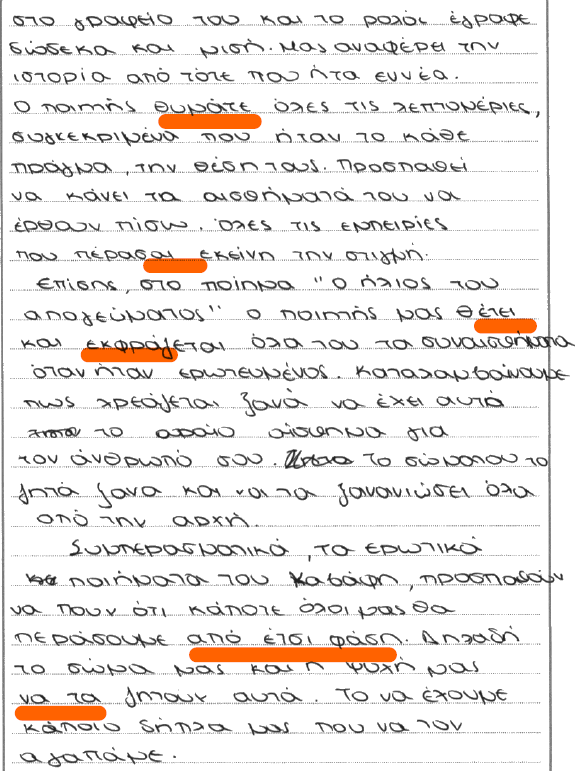 στο γραφείο του και το ρολόι έγραφε
δώδεκα και μισή. Μας αναφέρει την
ιστορία από τότε που ήτα εννέα.
Ο ποιητής θυμάτε όλες τις λεπτομέριες,
συγκεκριμένα που ήταν το κάθε
πράγμα, την θέση τους. Προσπαθεί
να κάνει τα αισθήματά του να
έρθουν πίσω. Όλες τις εμπειρίες
που πέρασαι εκείνη την στιγμή.
Επίσης, στο ποίημα "ο ήλιος του
απογεύματος" ο ποιητής μας θέτει
και εκφράζεται όλα του τα συναισθήματα
όταν ήταν ερωτευμένος. Καταλαμβαίνουμε
πως χρεάζεται ξανά να έχει αυτό
το ωραίο αίσθημα για
τον άνθρωπό σου. Το σώμα του το
ζητά ξανα και να τα ξανανιώσει όλα
από την αρχή.
Συμπερασματικά, τα ερωτικά
ποιήματα του Καβάφη, προσπαθούν
να πουν ότι κάποτε όλοι μας θα
περάσουμε από έτσι φάση. Δηλαδή
το σώμα μας και η ψυχή μας
να τα ζητουν αυτά. Το να έχουμε
κάποιο δήπλα μας που να τον
αγαπάμε.